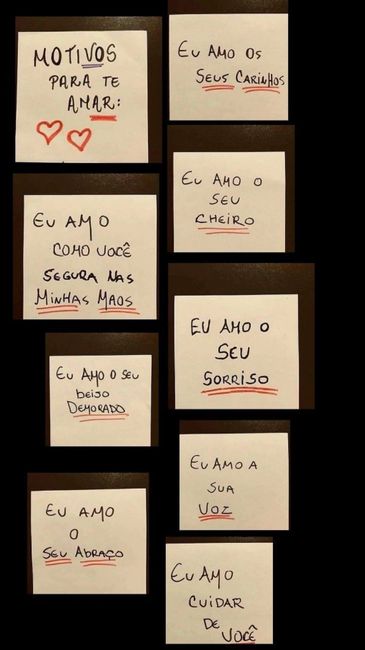 MOTIVOS
PARA TE
AMAR:
EU AMO OS
SEUS CARINHOS
EU AMO O
SEU
CHEIRO
EU AMO
COMO VOCÊ
SEGURA NAS
MINHAS MAOS
EU AMO O
SEU
SORRISO
EU AMO O SEU
BEIJO
DEMORADO
EU AMO A
SUA
VOZ
EU AMO
O
SEU ABRAÇO
EU AMO
CUIDAR
DE
VOCÊ